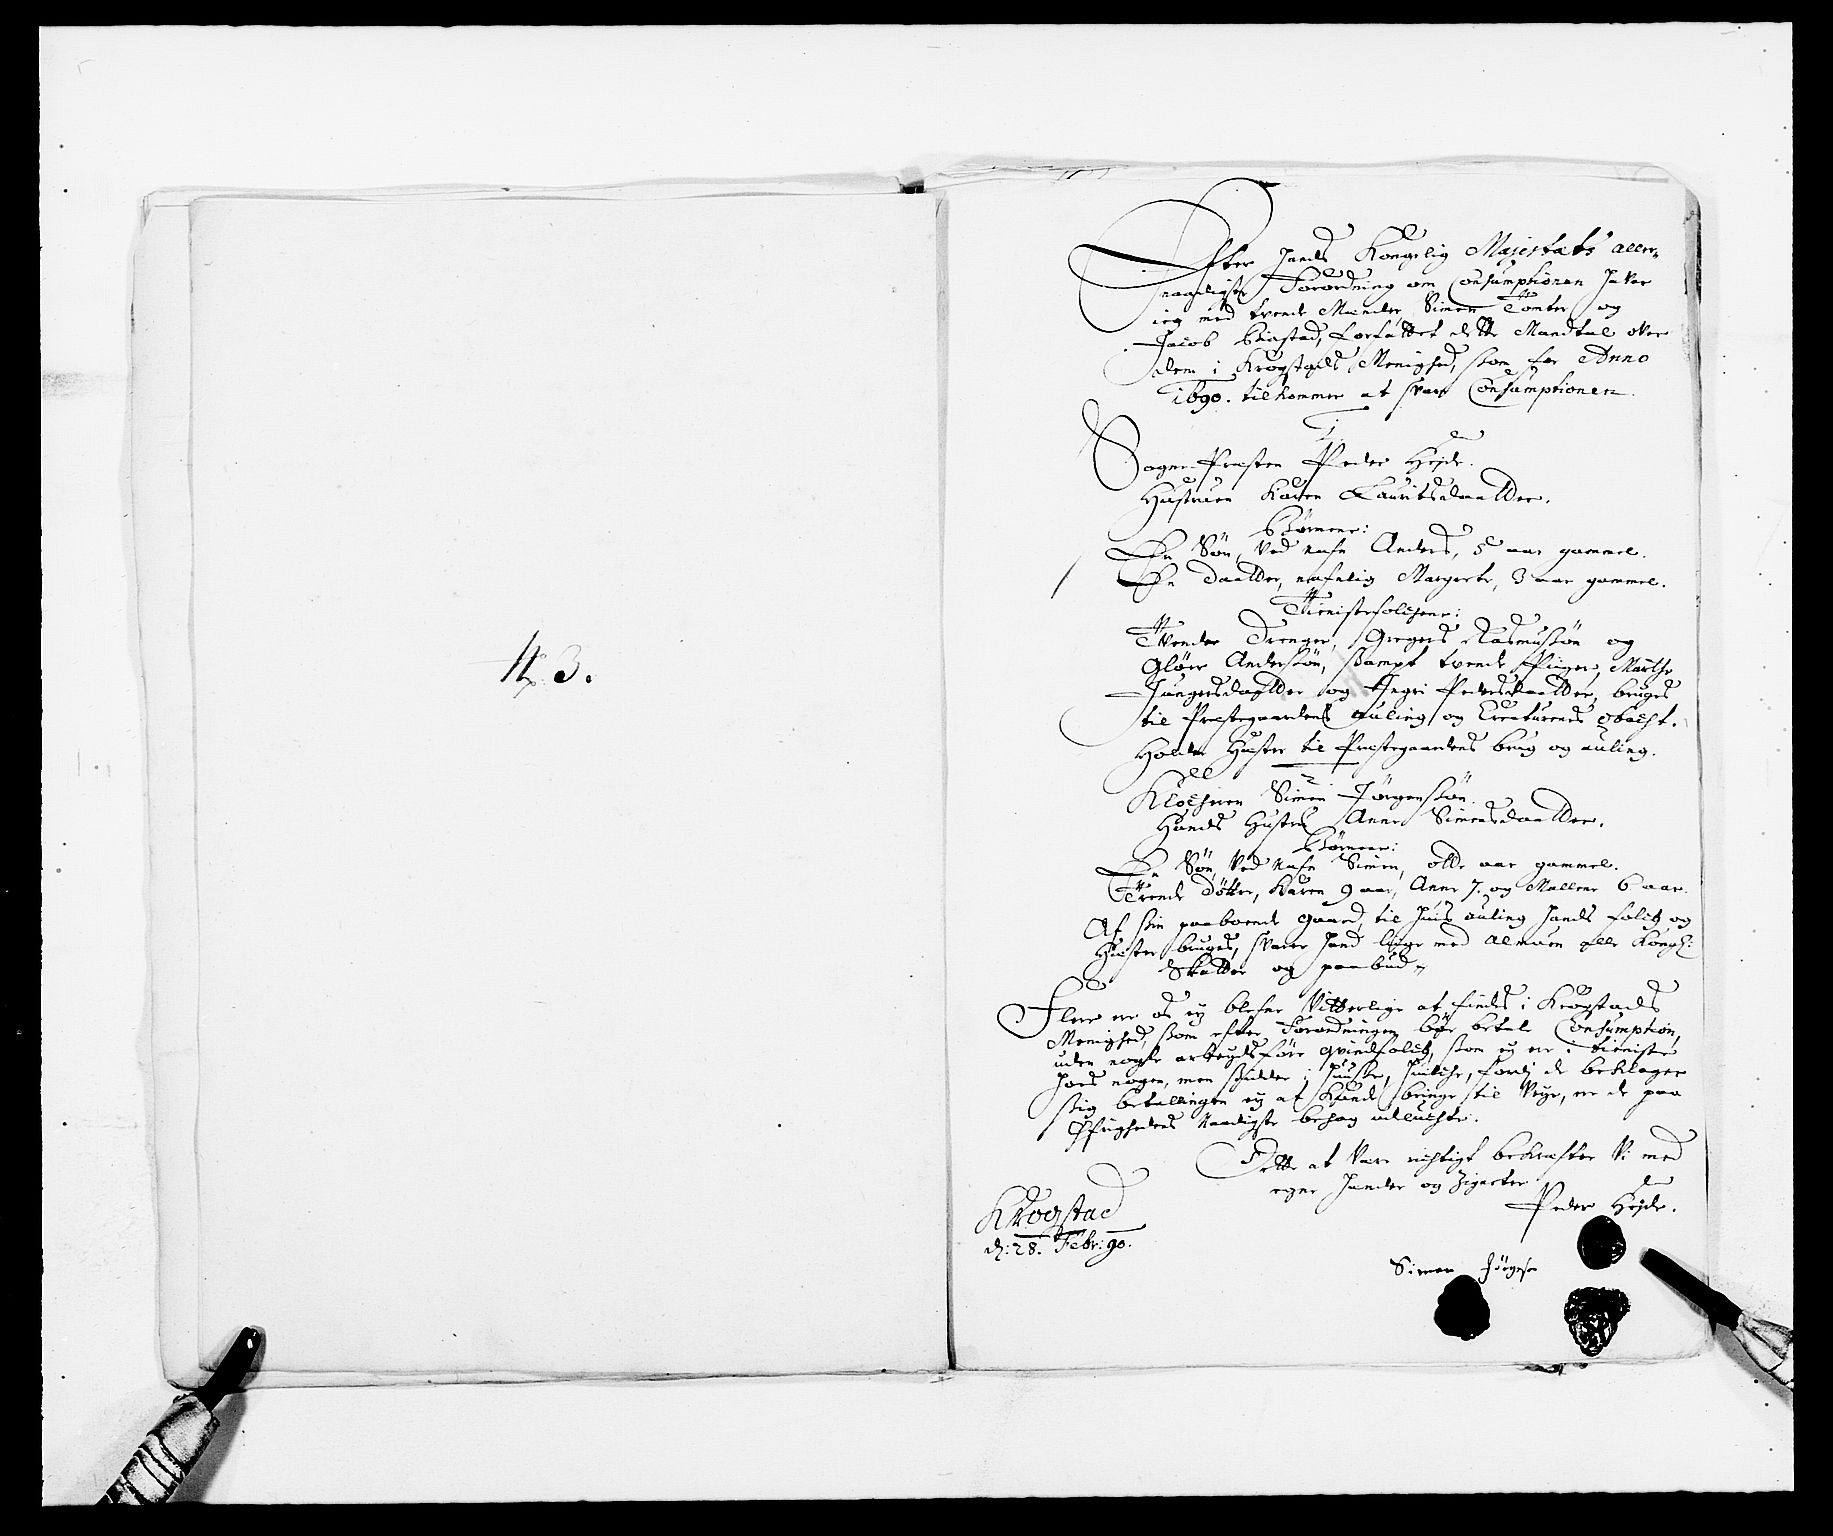 N 3.
Efter Hands Kongelig Majestæts aller-
naadigste Forordning om Consumptionen haver
ieg med tvende Mænder, Simen Tomter og
Jacob Biastad, forfattet dette Mandtal over
dem i Krogstads Menighed, som for Anno
1690. tilkommer at svare Consumptionen.
1.
Sogne-Præsten Peder Hejde.
Hustruen Karen Lauritsdaatter.
Børnene:
En Søn, ved nafn Anders, 5 aar gammel.
En Daatter, nafnlig Margrete, 3 aar gammel.
Tienistefolckene:
Tvende Drenger, Gregers Rasmussøn og
Gløer Anderssøn, sampt tvende Piiger, Marthe
Jungersdaatter og Ingri Pedersdaatter, bruges
til Præstegaardens auling og Creaturenes
Holder Heste til Præstegaardens brug og auling.
2.
Klockeren Simen Jørgenssøn.
Hands Hustru Anne Simensdaatter.
Børnene:
En Søn, ved nafn Simen, otte aar gammel.
Trende Døttre, Karen 9 aar, Anne 7. og Mallene 6 aar.
Af sin paaboende gaard, til huis auling hands folck og
Heste bruges, svarer hand lige med almuen alle Kongl:
Skatter og paabud.
Flere er os ej blefne vitterlige at findes i Krogstads
Menighed, som efter Forordningen bør betale Consumption,
uden nogle arbeydsføre qvindfolck, som ej ere i tieniste
hoes nogen, men sidder i huuse, huilcke, fordj de beklager
sig betallingen ej at kunde bringe til veye, er de paa
Øfrighedens naadigste behag udeluckte.
Dette at være rigtigt bekræfter vi med
egne hender og Zigneter
Krogstad
d: 28. Febr: 90.
Peder Hejde.
Simen Jørgensen